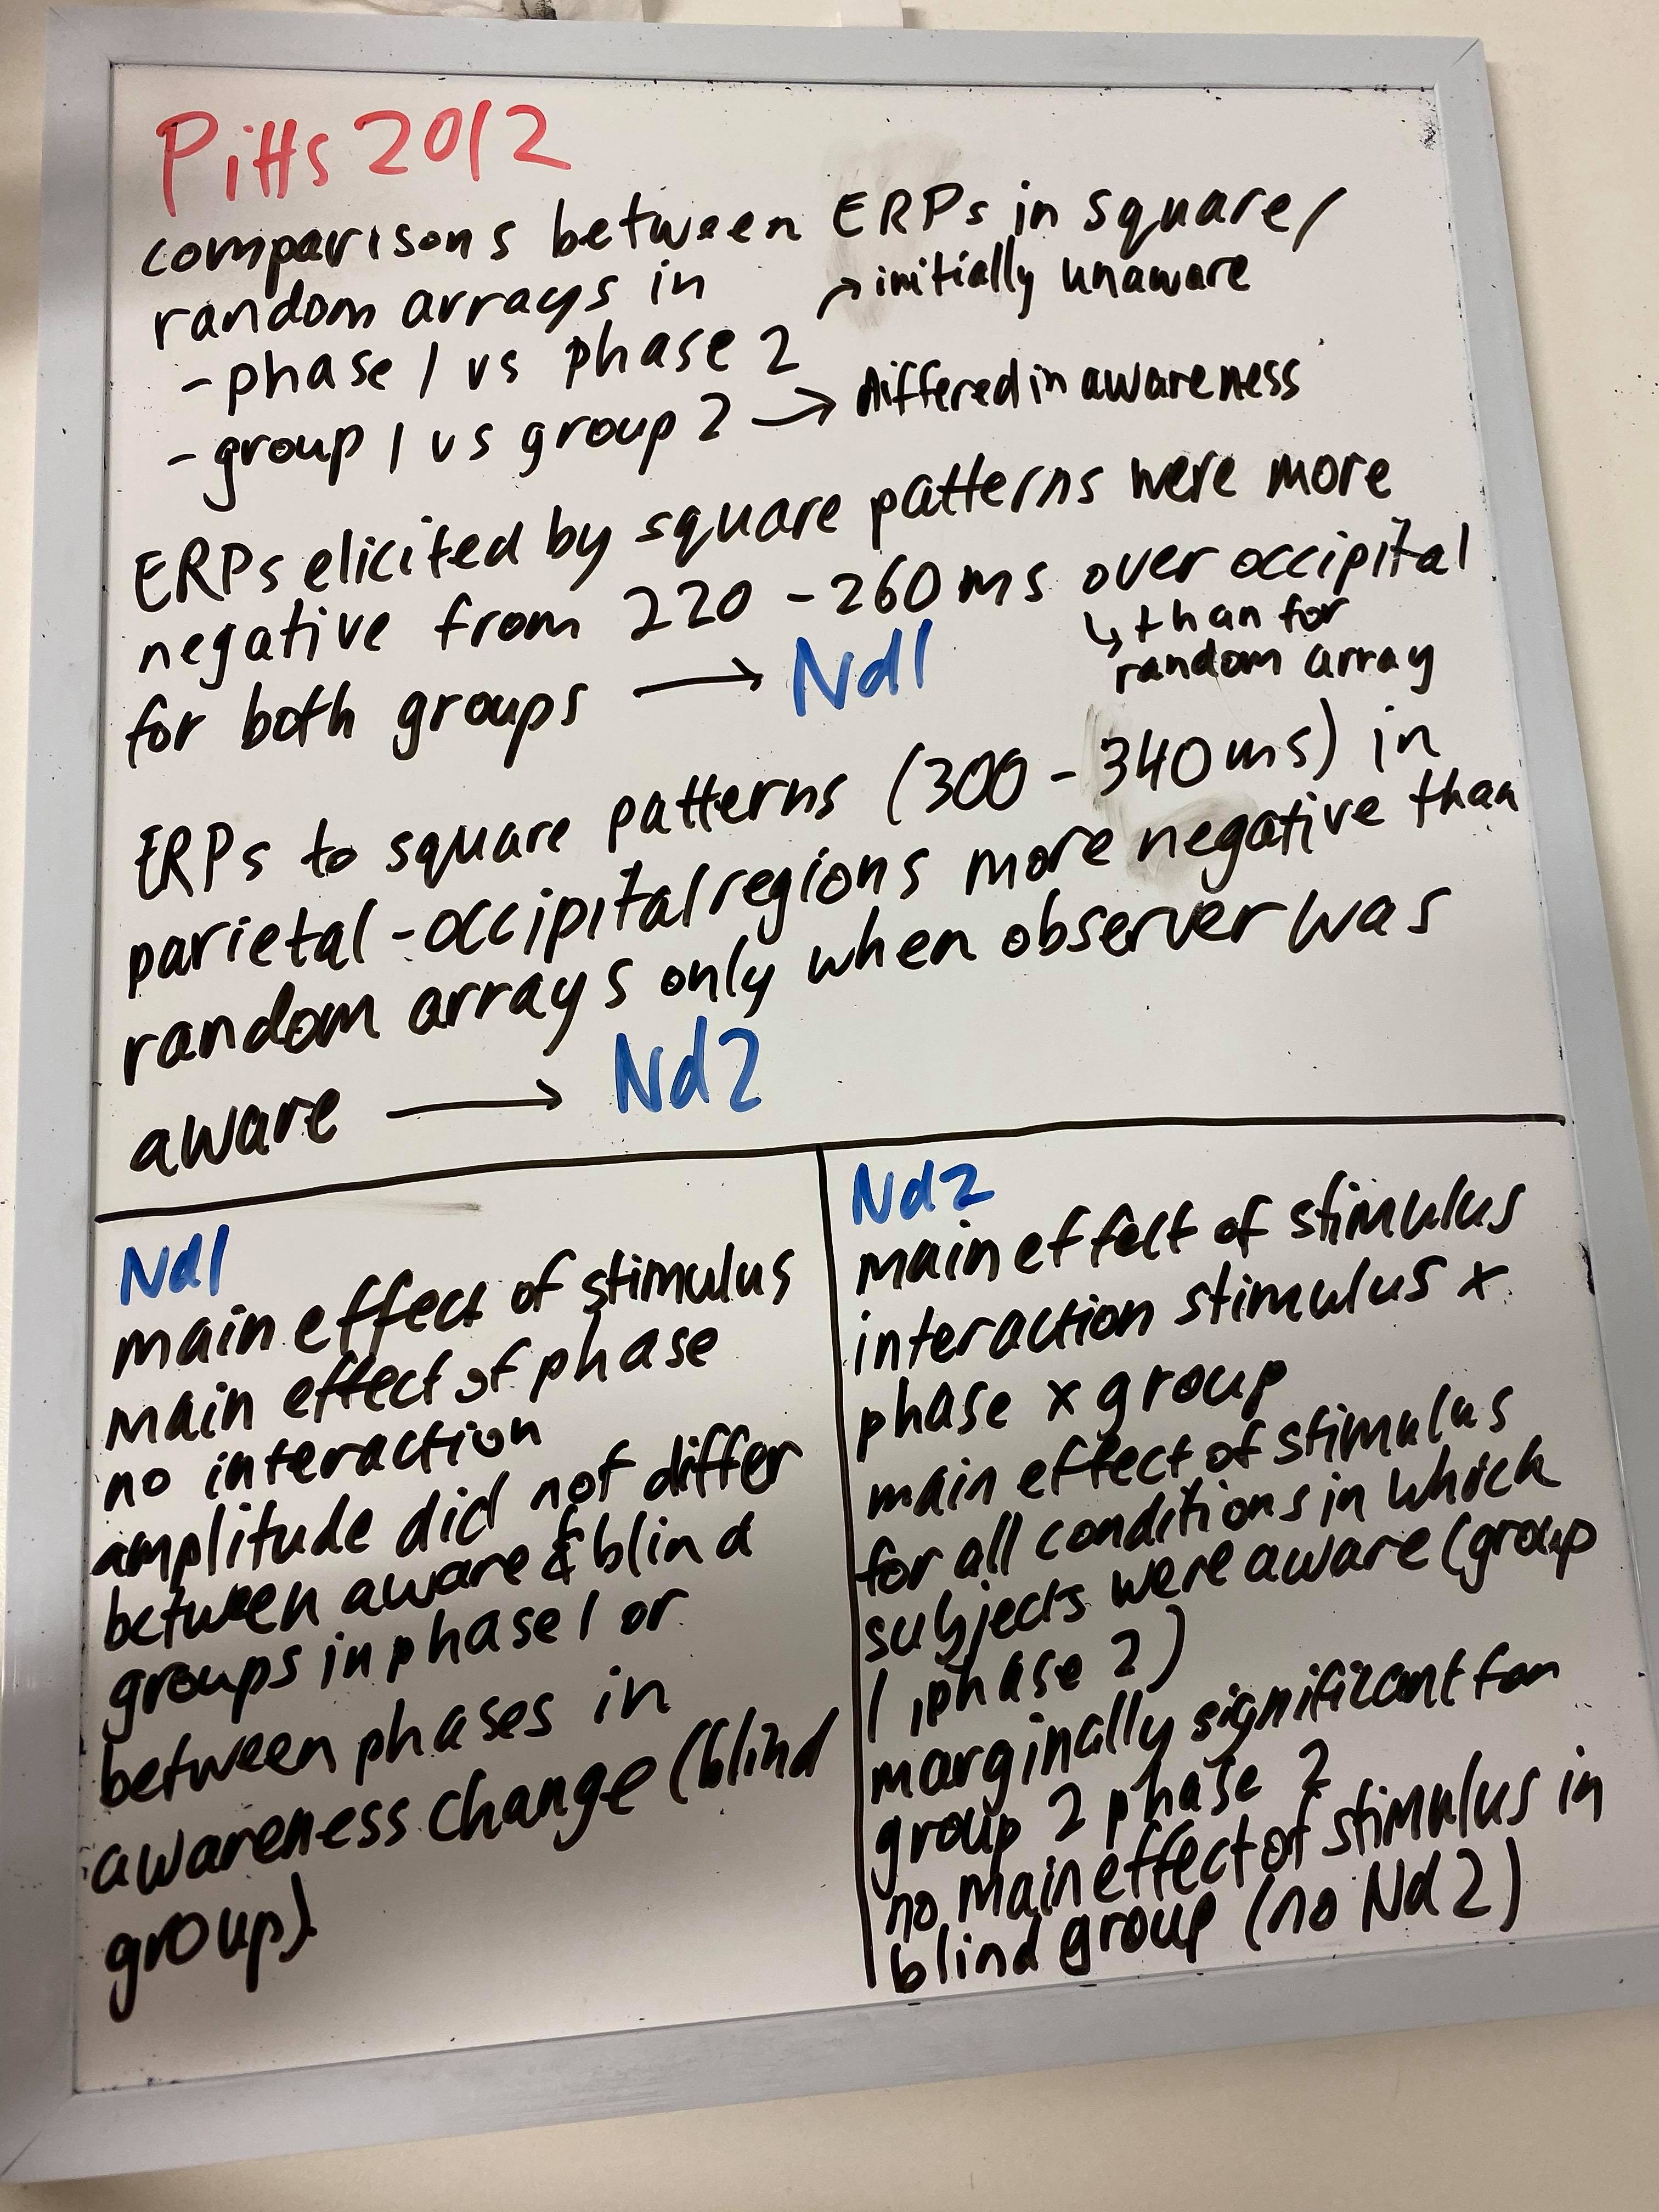 Pitts 2012
comparisons between ERPs in square/
random arrays in
→ initially unaware
- phase 1 vs phase 2
- group 1 vs group 2 → differed in awareness
ERPs elicited by square patterns were more
negative from 220 - 260 ms over occipital
↳ than for
random array
for both groups → Nd1
ERPs to square patterns (300 - 340 ms) in
parietal-occipital regions more negative than
random arrays only when observer was
aware → Nd2
Nd1
main effect of stimulus
main effect of phase
no interaction
amplitude did not differ
between aware & blind
groups in phase 1 or
between phases in
awareness change (blind
group)
Nd2
main effect of stimulus
interaction stimulus x
phase x group
main effect of stimulus
for all conditions in which
subjects were aware (group
1, phase 2)
marginally significant for
group 2 phase 2
no main effect of stimulus in
blind group (no Nd2)